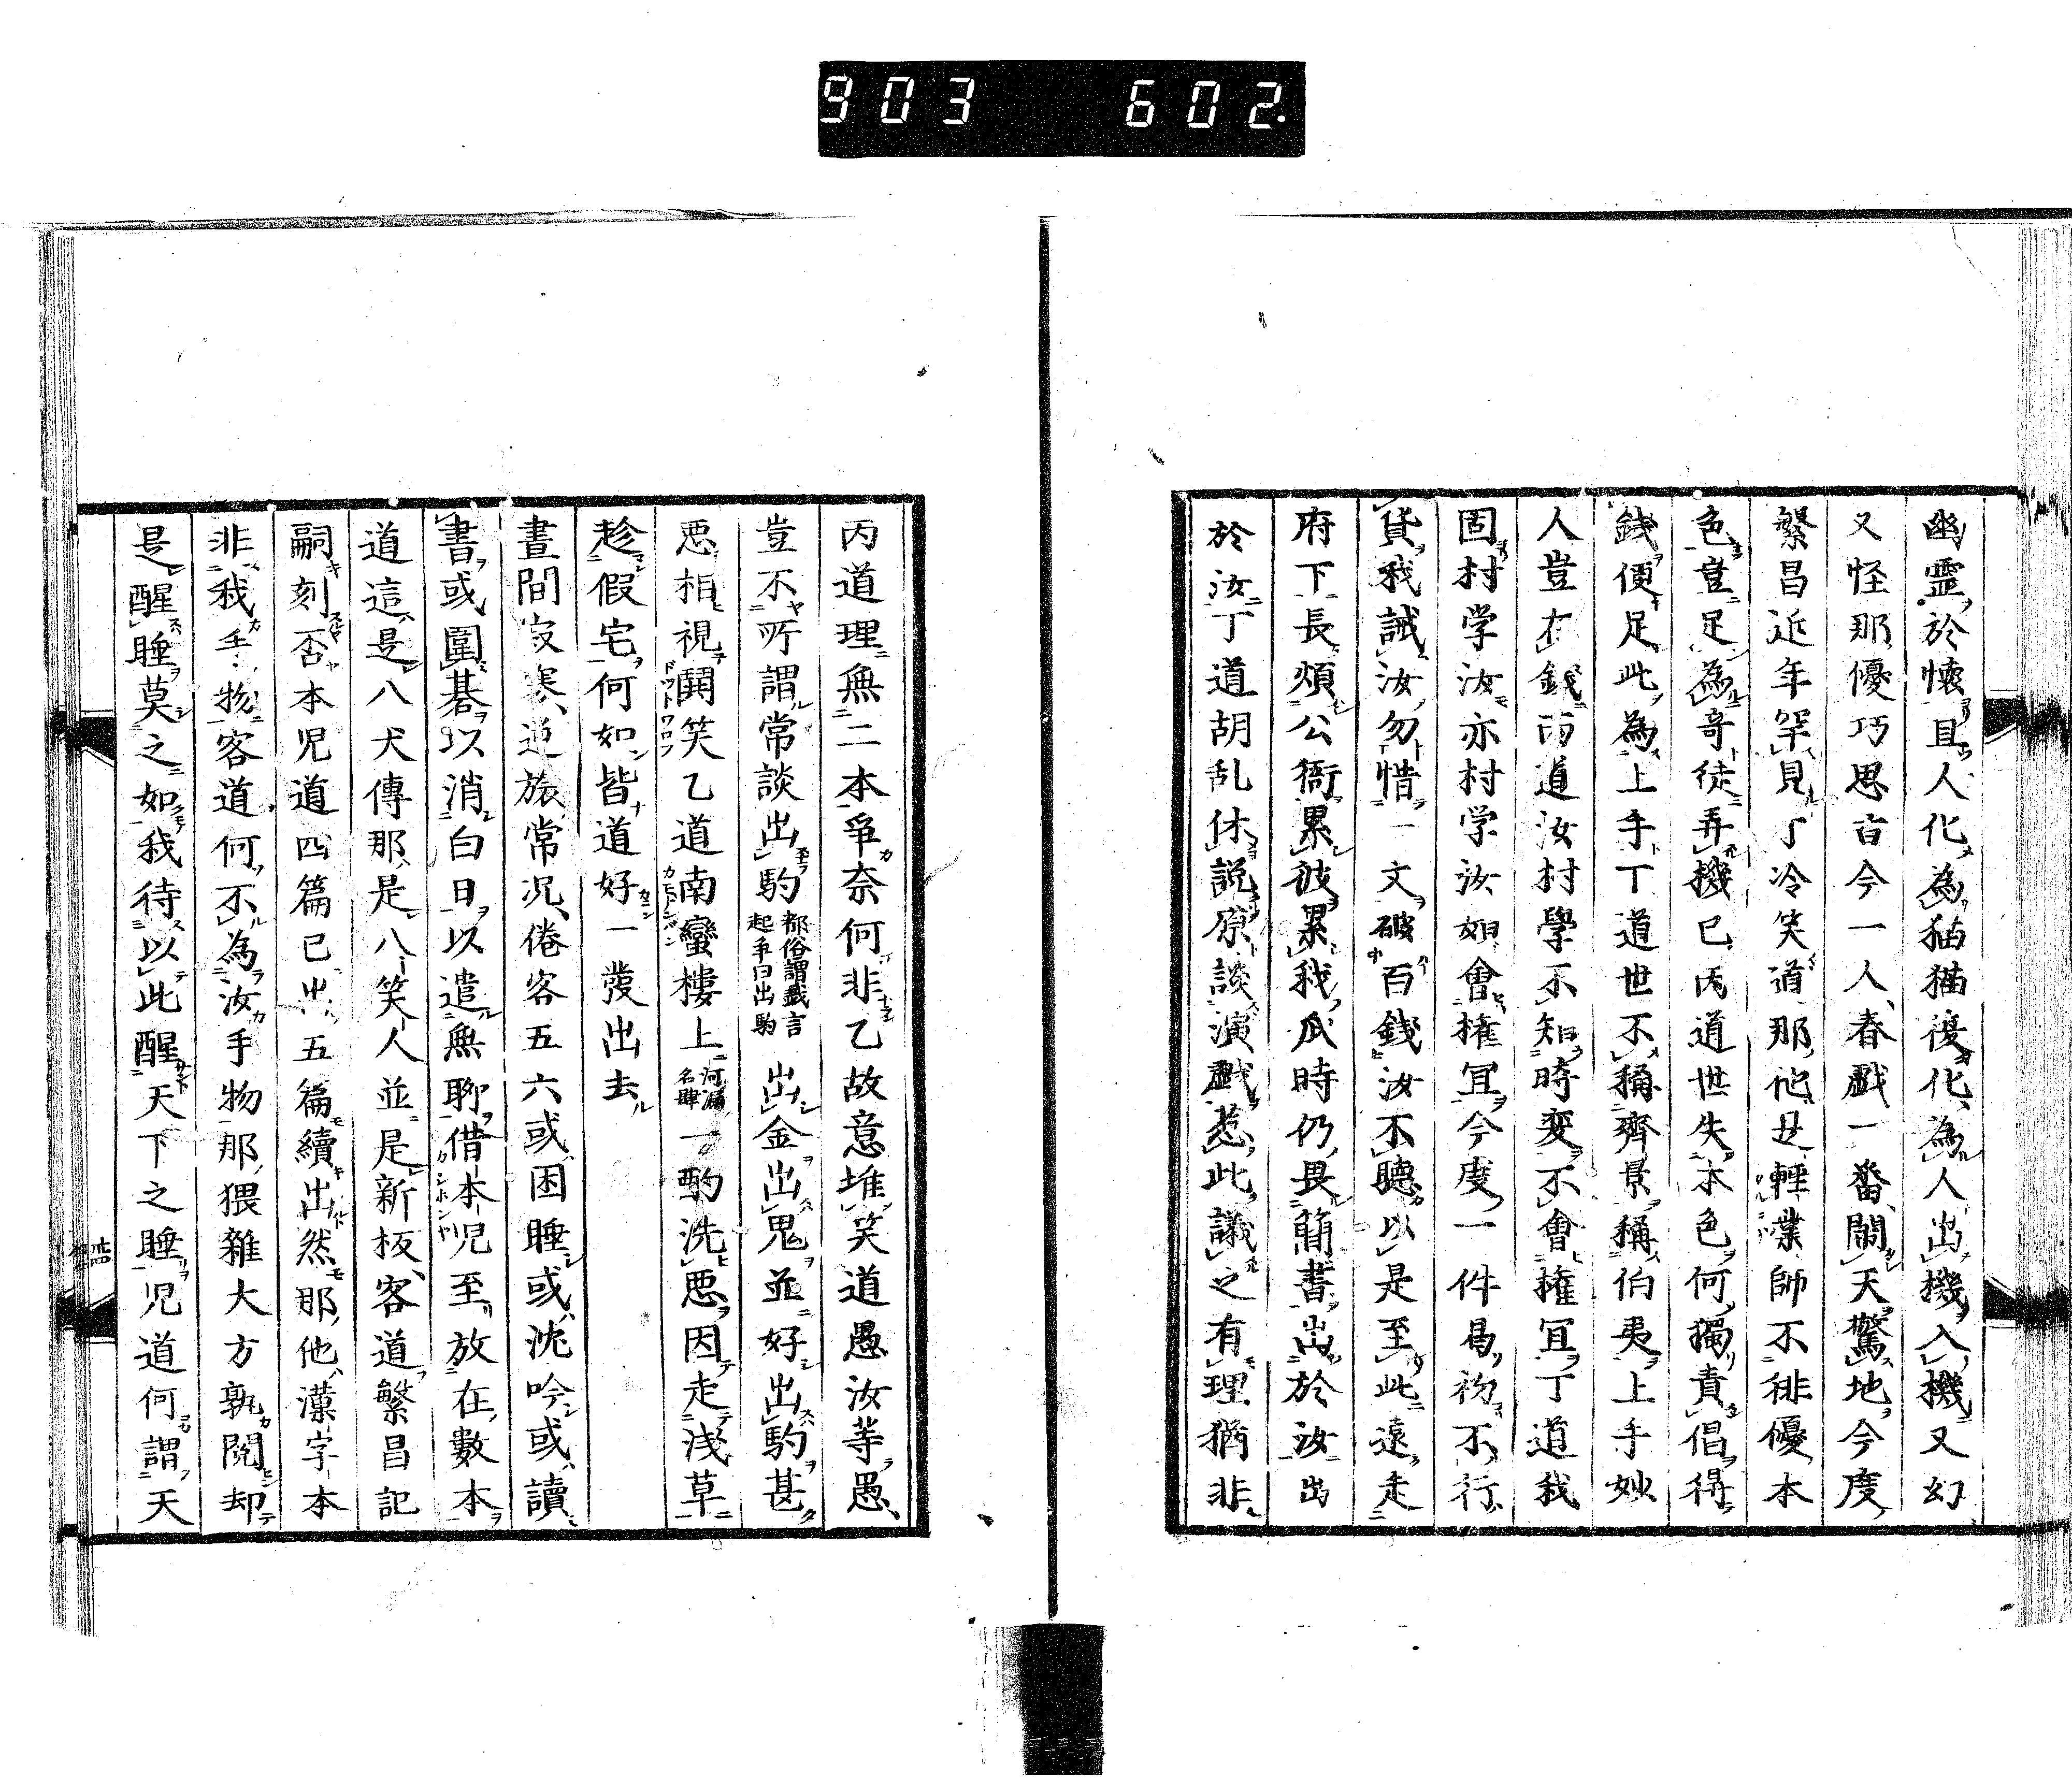 903 602.
幽霊於懐且人化為猫猫復化為人出機入機又幻
又怪那優巧思古今一人春戯一番閙天驚地今度
繁昌近年罕見丁冷笑道那他是軽業師不徘優本
色豈足為奇徒弄機已丙道世失本色何獨責倡得
銭便足此為上手丁道世不稱齊景稱伯夷上手妙
人豈在銭而道汝村學不知時変不會権冝丁道我
固村学汝亦村学汝如會権冝今度一件曷初不行
貨我誡汝勿惜一文破百銭汝不聽以是至此遠走
府下長煩公衙累彼累我瓜時仍畏簡書出於汝出
於汝丁道胡乱休説原談演戯惹此議之有理猶非
丙道理無二本爭奈何非乙故意堆笑道愚汝等愚
豈不所謂常談出駒都俗謂戯言起爭曰出駒出金出鬼並好出駒甚
悪相視鬨笑乙道南蠻樓上河漏名肆一酌洗悪因走浅草
趁假宅何如皆道好一發出去
晝間寂寞逆旅常况倦客五六或困睡或沈吟或讀
書或圍碁以消白日以遣無聊借本児至放在數本
道這是八犬傳那是八笑人並是新板客道繁昌記
嗣刻否本児道四篇已出五篇續出然那他漢字本
非我手物客道何不為汝手物那猥雜大方孰閲却
是醒睡莫之如我待以此醒天下之睡児道何謂天